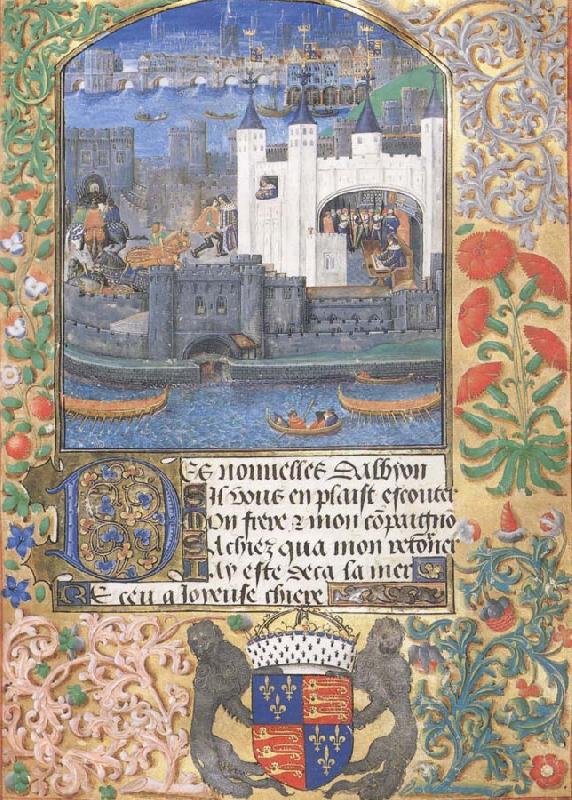 Des nouuelles dalbyon
Sil vous en plaist escouter
Mon frere & mon cōpaignō
Sachiez qua mon retōrner
Jay este deca la mer
Receu a joyeuse chiere